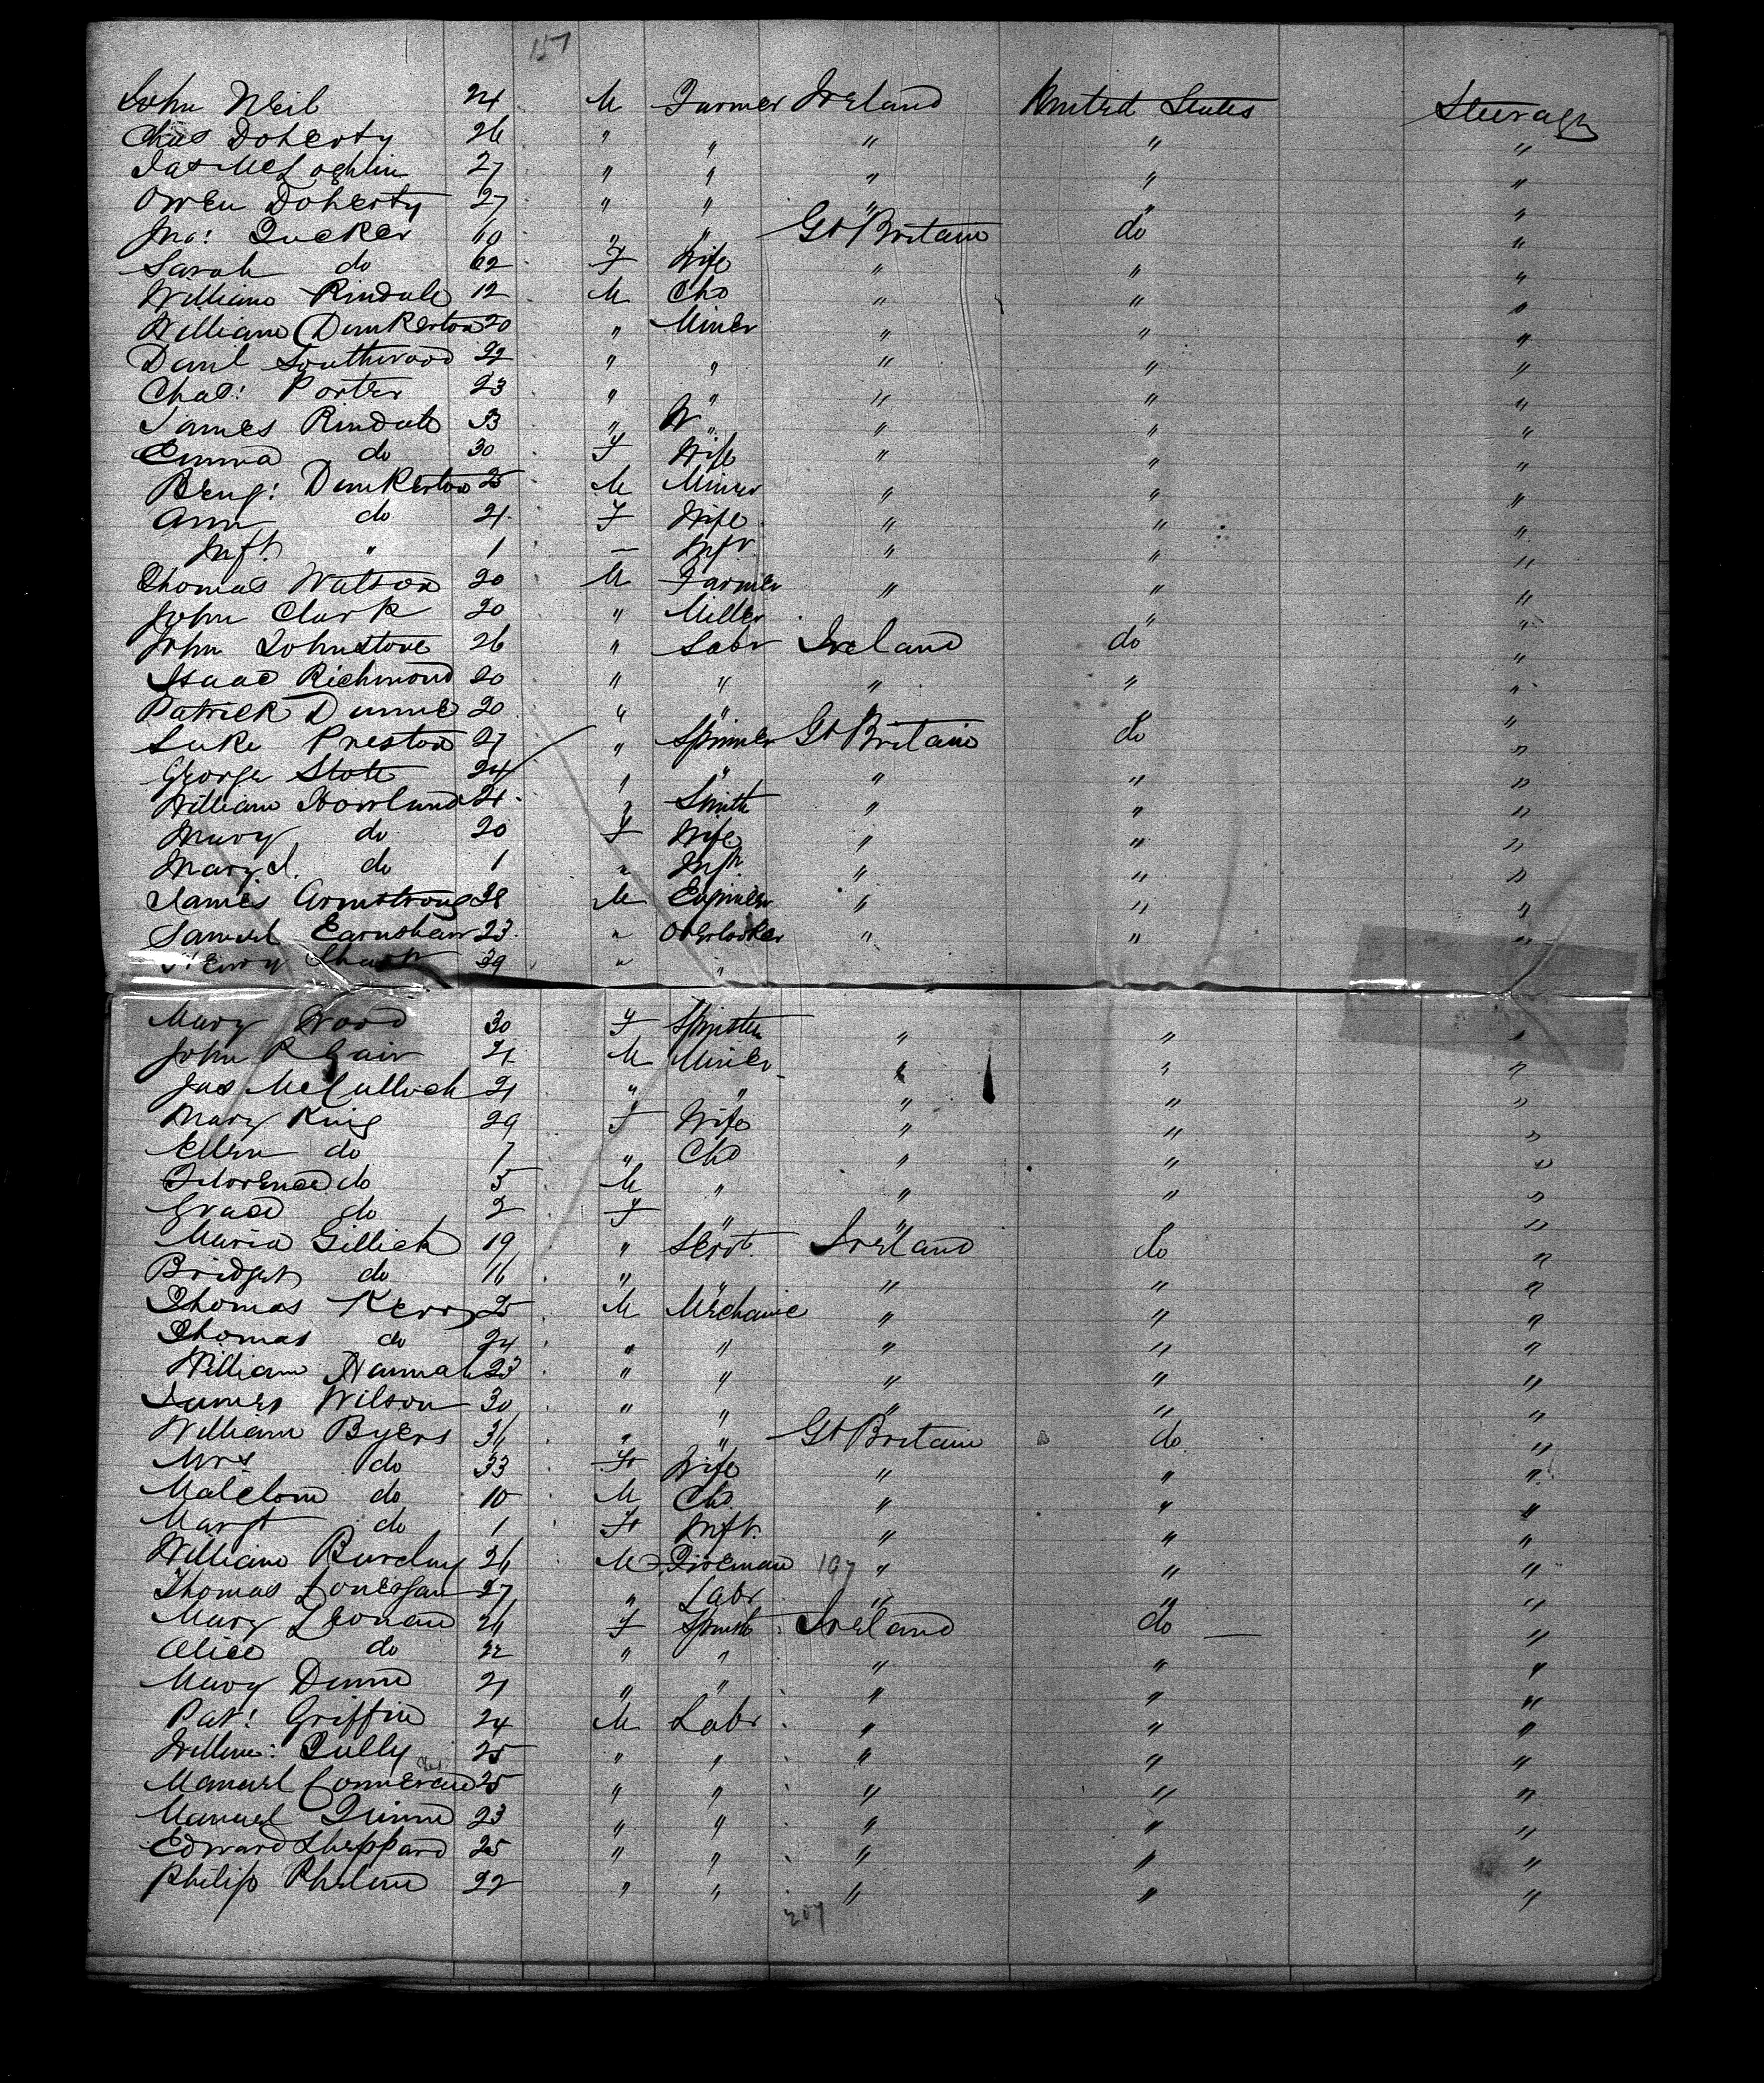 157
John Neil 24 M Farmer Ireland United States Steerage
Chas Doherty 26 " " " " "
Jas McLoghlin 27 " " " " "
Owen Doherty 27 " " " " "
Jno: Tucker 60 " " Gt Britain do "
Sarah do 62 F Wife " " "
William Rindale 12 M Chd " " "
William Dunkerton 20 " Miner " " "
Danl Southwood 22 " " " " "
Chas: Porter 23 " " " " "
James Rindale 33 " " " " "
Emma do 30 F Wife " " "
Benj: Dunkerton 25 M Miner " " "
Ann do 21 F Wife " " "
Inft " 1 — Inft " " "
Thomas Watson 20 M Farmer " " "
John Clark 20 " Miller " " "
John Johnstone 26 " Labr Ireland do "
Isaac Richmond 20 " " " " "
Patrick Dunne 20 " " " " "
Luke Preston 27 " Spinner Gt Britain do "
George Stott 24 " " " " "
William Howland 21 " Smith " " "
Mary do 20 F Wife " " "
Mary J. do 1 " Inft " " "
James Armstrong 38 M Enginer " " "
Samuel Earnshaw 23 " Overlooker " " "
Henry 39 " "
Mary Wood 30 F Spinster " " "
John R Gair 21 M Miner " " "
Jas McCulloch 21 " " " " "
Mary King 29 F Wife " " "
Ellen do 7 " Chd " " "
Florence do 5 M " " " "
Grace do 2 F " " " "
Maria Gillick 19 " Servt. Ireland do "
Bridget do 16 " " " " "
Thomas Kerr 25 M Mechanic " " "
Thomas do 24 " " " " "
William Hannah 23 " " " " "
James Wilson 30 " " " " "
William Byers 36 " " Gt Britain do "
Mrs do 33 F Wife " " "
Malclom do 10 M Chd " " "
Margt do 1 F Inft. " " "
William Barclay 26 M Fireman 107 " " "
Thomas Lonergan 27 " Labr " " "
Mary Leonard 26 F Spinstr Ireland do "
Alice do 22 " " " " "
Mary Dunne 21 " " " " "
Pat: Griffin 24 M Labr " " "
Willm: Tully 25 " " " " "
Manuel 25 " " " " "
Manuel Quinn 23 " " " " "
Edward Sheppard 25 " " " " "
Philip Phelan 22 " " " " "
207